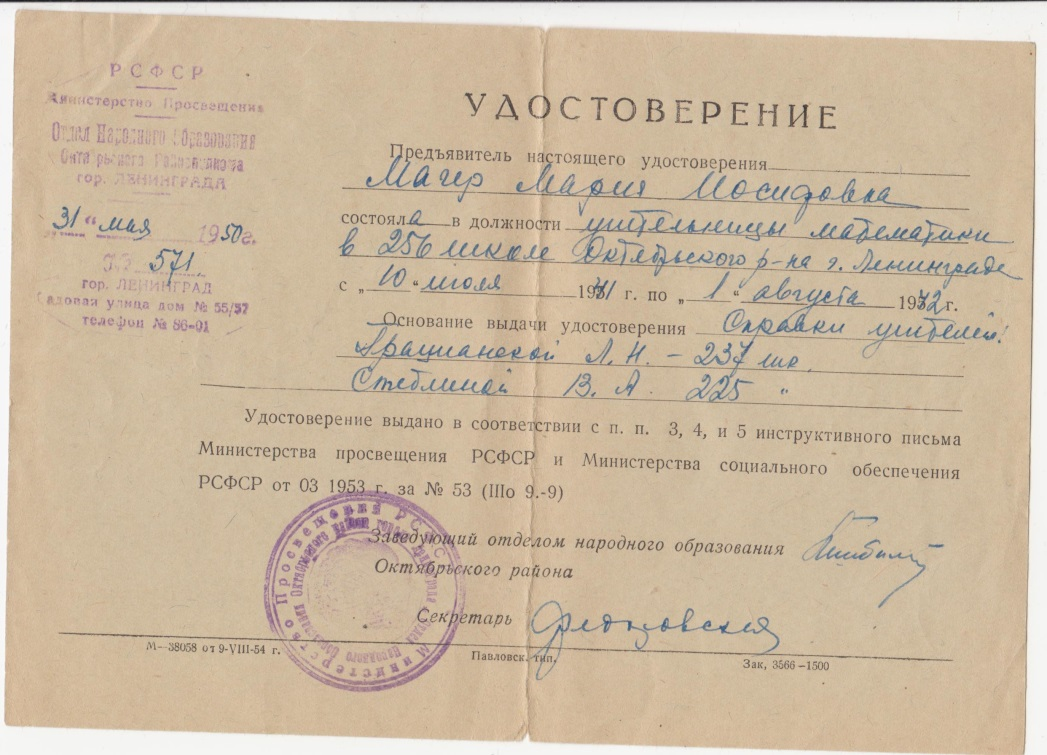 РСФСР
Министерство Просвещения
Отдел Народного Образования
Октябрьского Райисполкома
гор. ЛЕНИНГРАДА
31 "мая 1950г.
№ 571
гор. ЛЕНИНГРАД
Садовая улица дом № 55/57
телефон № 86-01
УДОСТОВЕРЕНИЕ
Предъявитель настоящего удостоверения
Магер Мария Иосифовна
состояла в должности учительницы математики
в 256 школе Октябрьского р-на г. Ленинграда
с „ 10 " июля 1941 г. по „ 1 " августа 1942 г.
Основание выдачи удостоверения Справки учителей:
Грацианской Л. Н. – 237 шк.
Стеблиной В. А. 225 "
Удостоверение выдано в соответствии с п. п. 3, 4, и 5 инструктивного письма
Министерства просвещения РСФСР и Министерства социального обеспечения
РСФСР от 03 1953 г. за № 53 (IIIо 9.-9)
Заведующий отделом народного образования
Октябрьского района
Секретарь
Министерство Просвещения РСФСР
М—38058 от 9-VIII-54 г.
Павловск. тип.
Зак, 3566 -1500